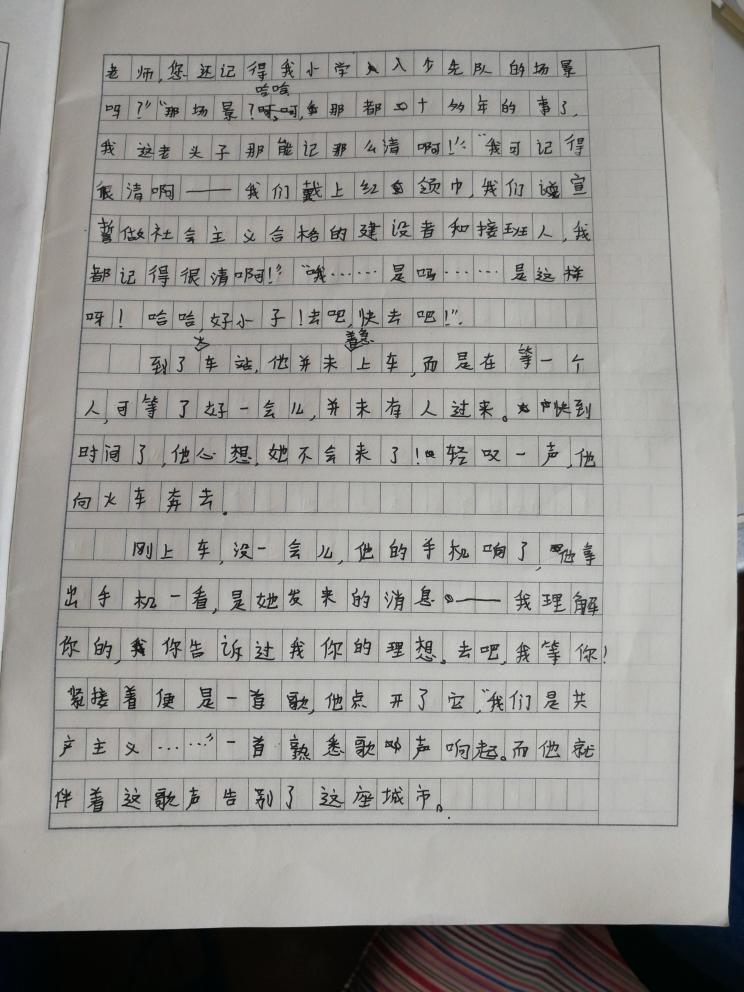 老师,您还记得我小学入少先队的场景
吗?”“那场景?哈哈,那都二十多年的事了,
我这老头子那能记那么清啊!”“我可记得
很清啊——我们戴上红领巾,我们宣
誓做社会主义合格的建设者和接班人,我
都记得很清啊!”“哦……是吗……是这样
呀!哈哈,好小子!去吧,快去吧!”
到了火车站,他并未着急上车,而是在等一个
人,可等了好一会儿,并未有人过来。快到
时间了,他心想,她不会来了!轻叹一声,他
向火车奔去。
刚上车,没一会儿,他的手机响了,他拿
出手机一看,是她发来的消息——我理解
你的,你告诉过我你的理想。去吧,我等你!
紧接着便是一首歌,他点开了它,“我们是共
产主义……”一首熟悉歌声响起。而他就
伴着这歌声告别了这座城市。